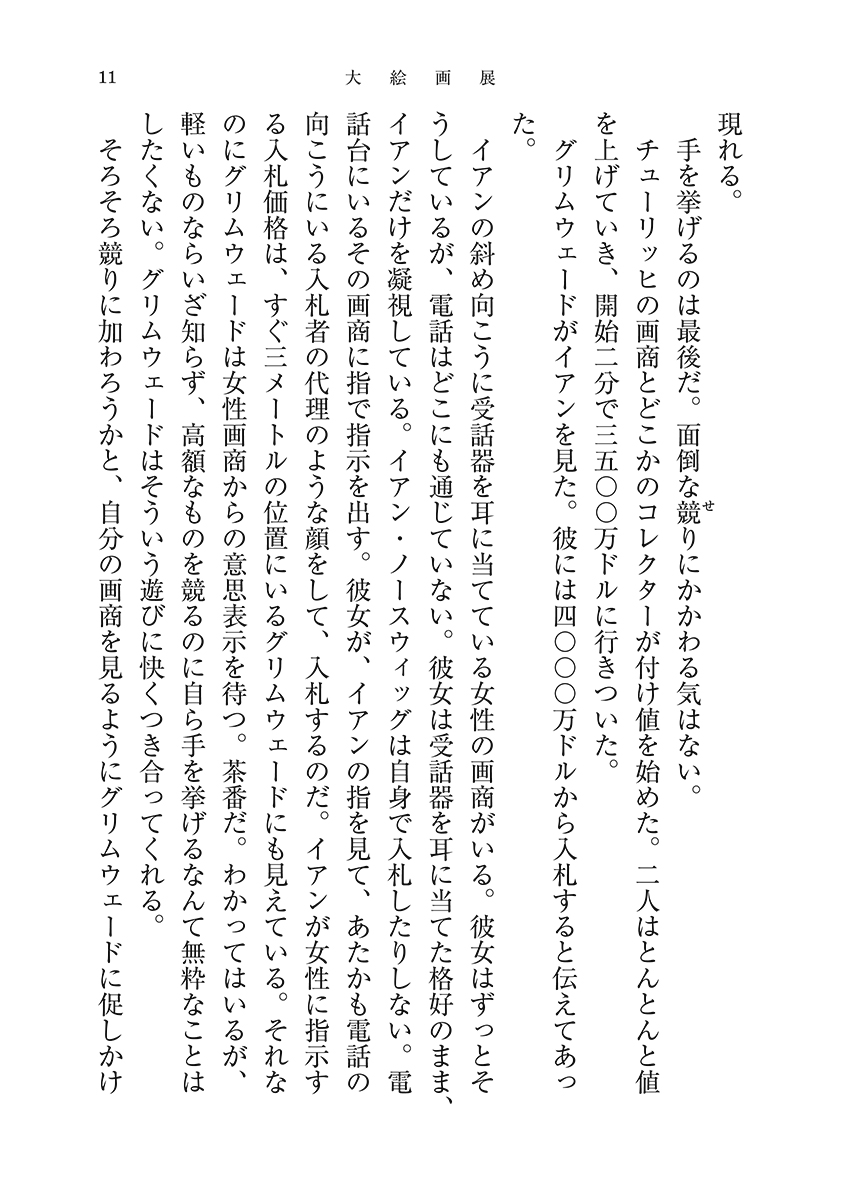 11
大絵画展
現れる。
　手を挙げるのは最後だ。面倒な競りにかかわる気はない。
せ
　チューリッヒの画商とどこかのコレクターが付け値を始めた。二人はとんとんと値
を上げていき、開始二分で三五〇〇万ドルに行きついた。
　グリムウェードがイアンを見た。彼には四〇〇〇万ドルから入札すると伝えてあっ
た。
　イアンの斜め向こうに受話器を耳に当てている女性の画商がいる。彼女はずっとそ
うしているが、電話はどこにも通じていない。彼女は受話器を耳に当てた格好のまま、
イアンだけを凝視している。イアン・ノースウィッグは自身で入札したりしない。電
話台にいるその画商に指で指示を出す。彼女が、イアンの指を見て、あたかも電話の
向こうにいる入札者の代理のような顔をして、入札するのだ。イアンが女性に指示す
る入札価格は、すぐ三メートルの位置にいるグリムウェードにも見えている。それな
のにグリムウェードは女性画商からの意思表示を待つ。茶番だ。わかってはいるが、
軽いものならいざ知らず、高額なものを競るのに自ら手を挙げるなんて無粋なことは
したくない。グリムウェードはそういう遊びに快くつき合ってくれる。
　そろそろ競りに加わろうかと、自分の画商を見るようにグリムウェードに促しかけ